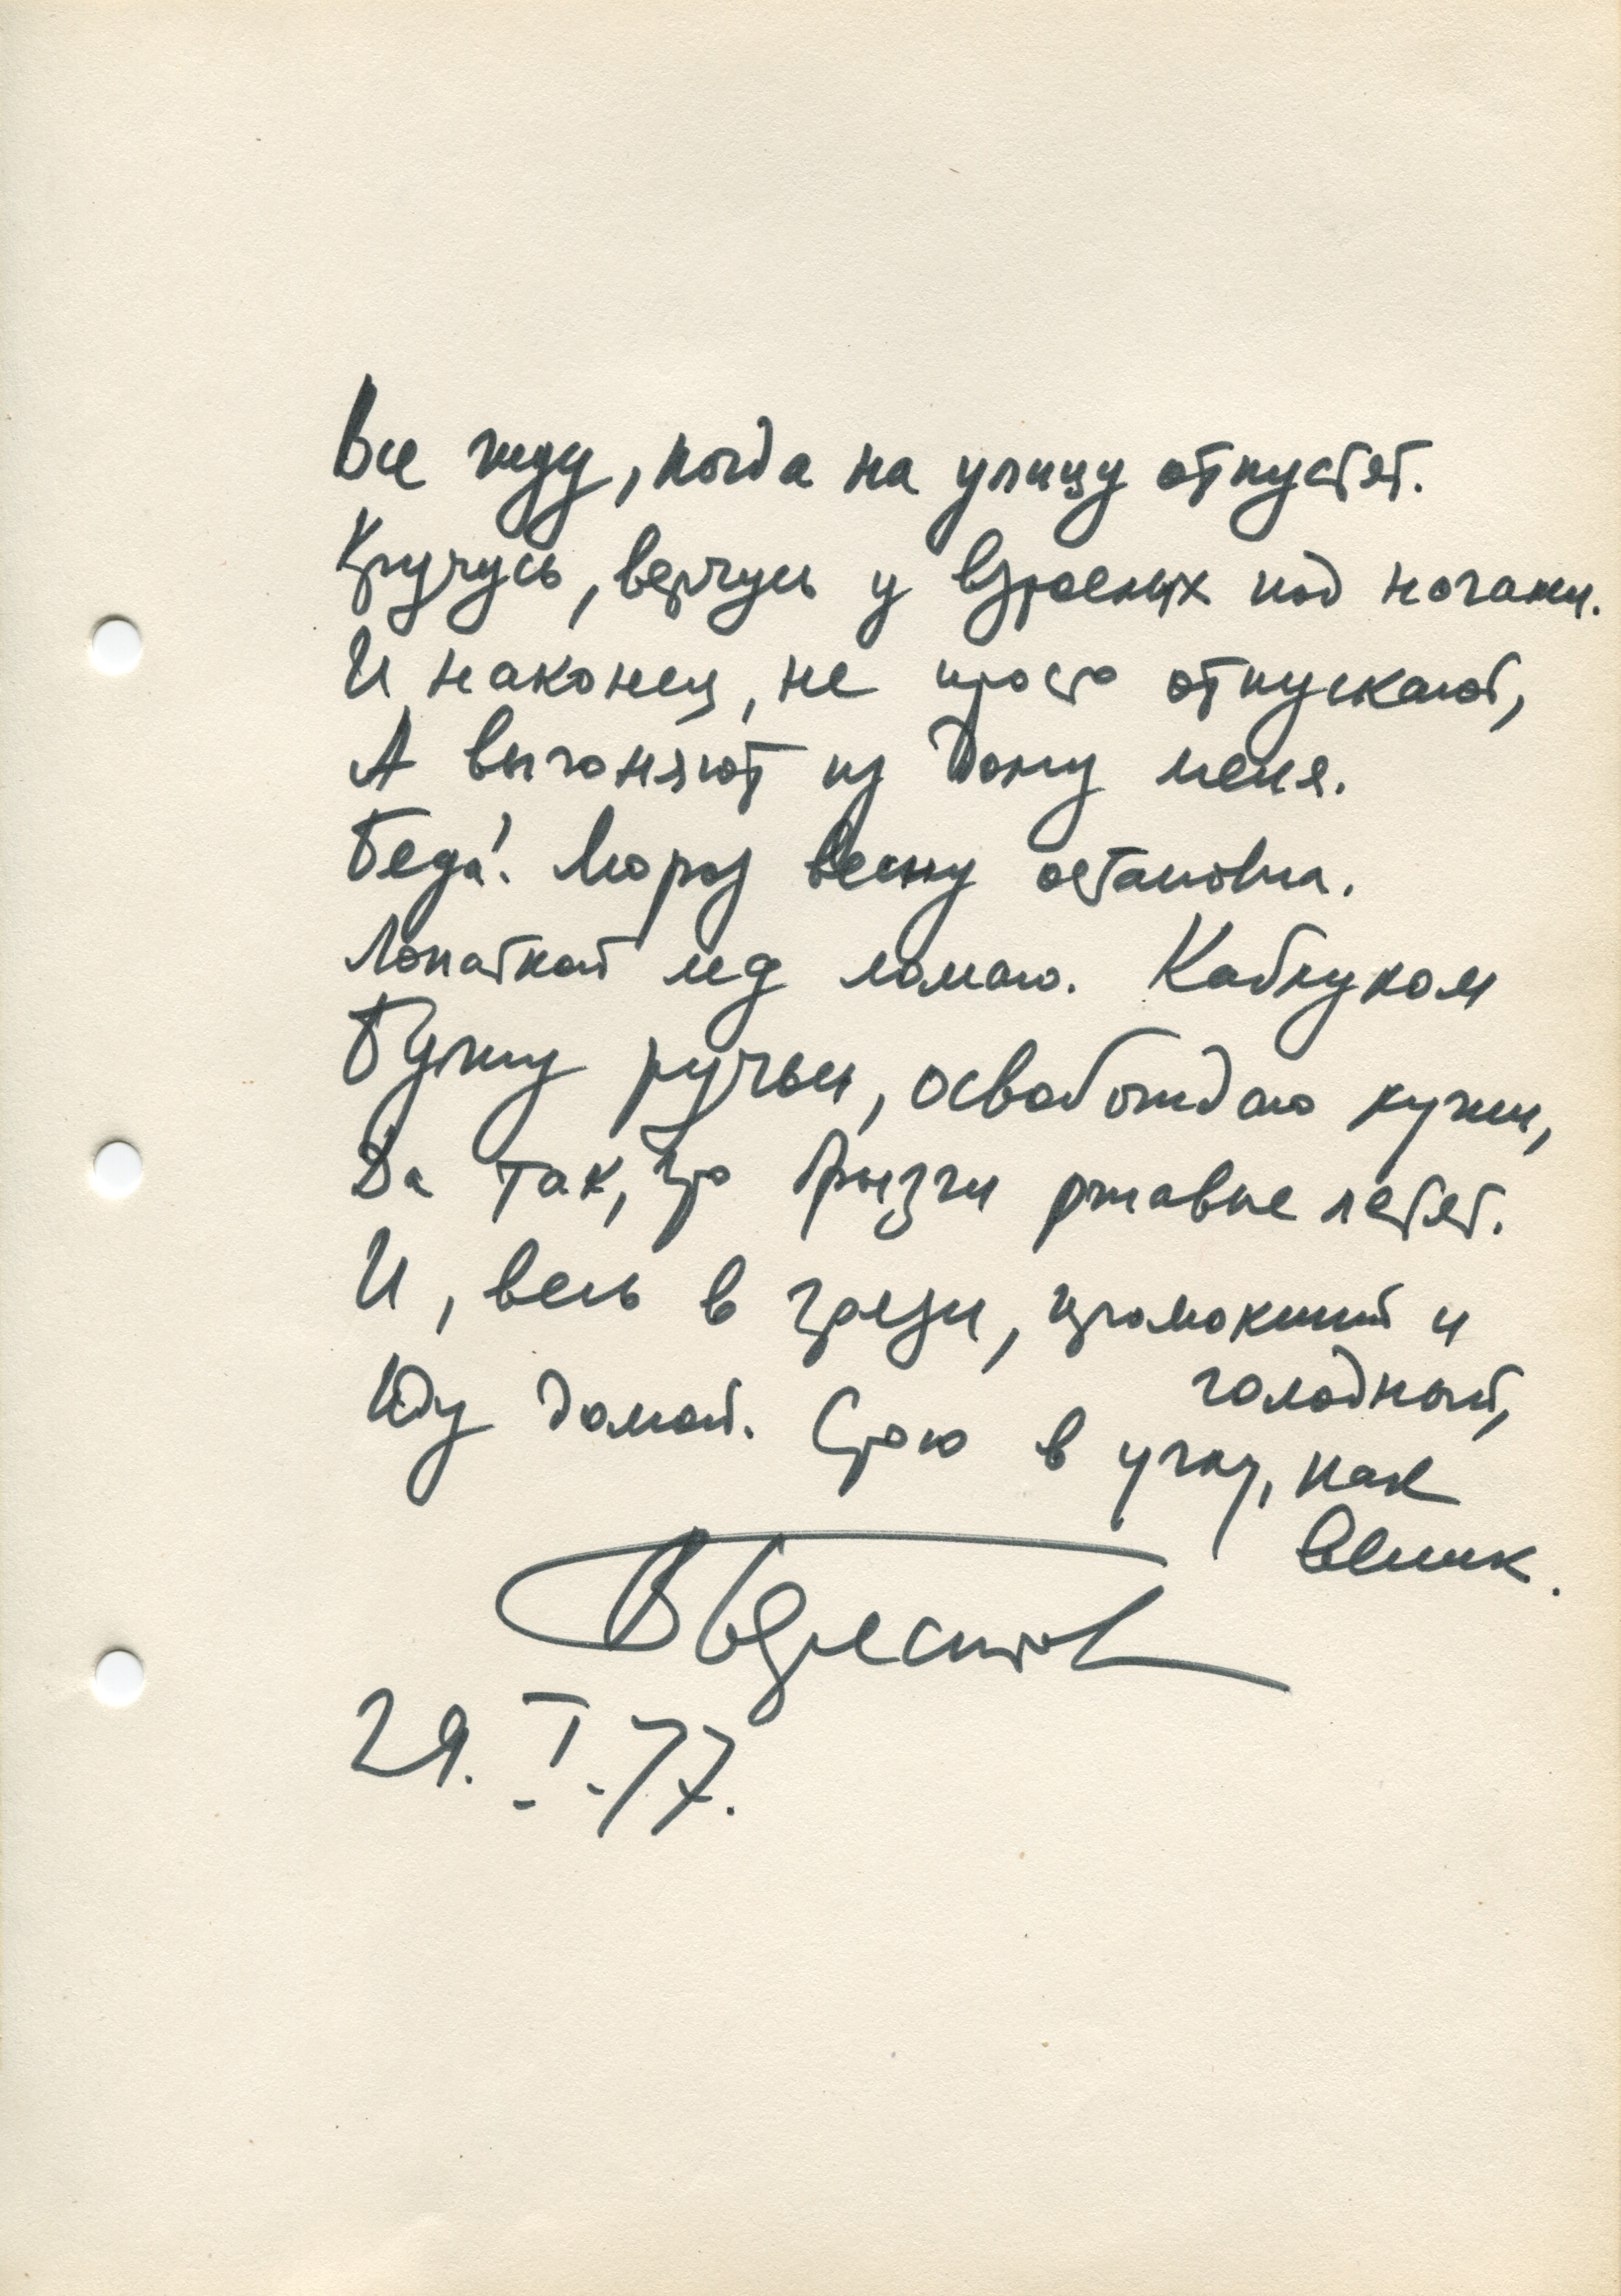 Все жду, когда на улицу отпустят.
Кручусь, верчусь у взрослых под ногами.
И наконец, не просто отпускают,
А выгоняют из дому меня.
Беда! Мороз весну остановил.
Лопаткой лед ломаю. Каблуком
Бужу ручьи, освобождаю лужи,
Да так, что брызги ржавые летят.
И, весь в грязи, промокший и
голодный,
Иду домой. Стою в углу, как
веник.
В Берестов
29. I. 77.